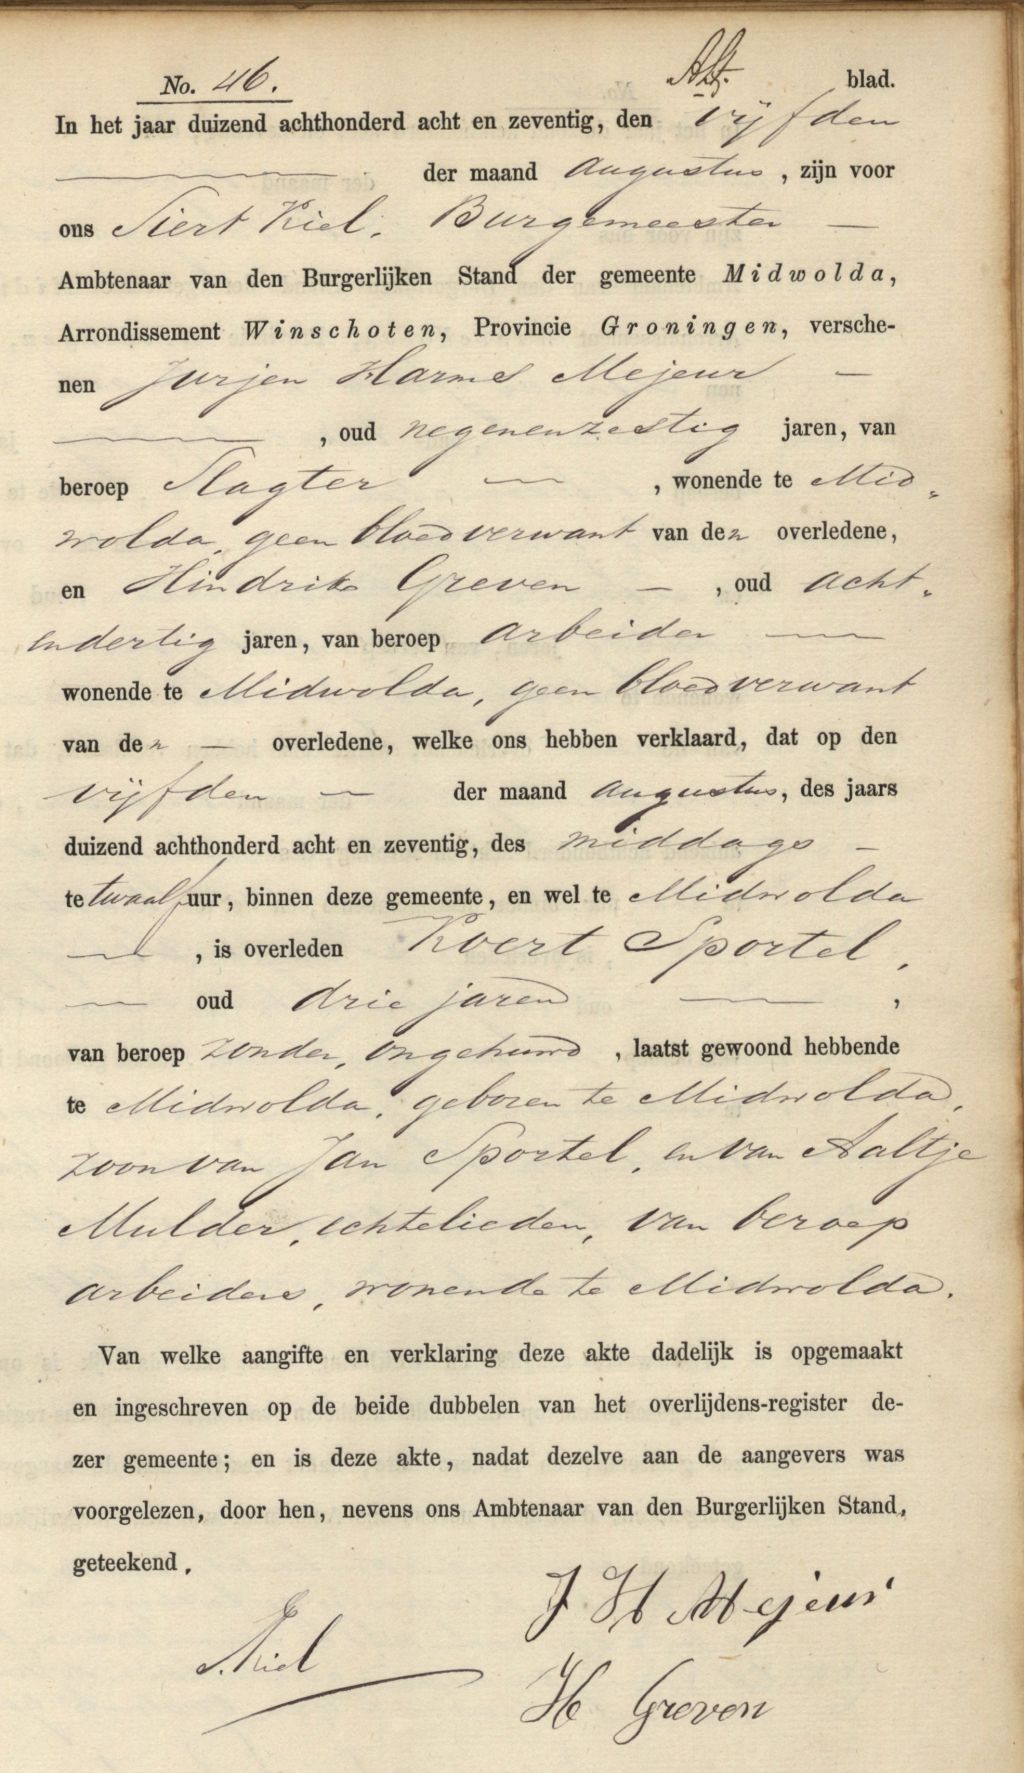 No. 46. blad.
In het jaar duizend achthonderd acht en zeventig, den vijfden
der maand Augustus, zijn voor
ons Siert Kiel, Burgemeester
Ambtenaar van den Burgerlijken Stand der gemeente Midwolda,
Arrondissement Winschoten, Provincie Groningen, versche-
nen Jurjen Harms Mejeur
, oud negenenzestig jaren, van
beroep Slagter , wonende te Mid„
wolda, geen bloedverwant van den overledene,
en Hindrik Greven , oud acht„
endertig jaren, van beroep arbeider
wonende te Midwolda, geen bloedverwant
van den overledene, welke ons hebben verklaard, dat op den
vijfden der maand Augustus, des jaars
duizend achthonderd acht en zeventig, des middags
te twaalf uur, binnen deze gemeente, en wel te Midwolda
, is overleden Koert Sportel,
oud drie jaren ,
van beroep zonder, ongehuwd , laatst gewoond hebbende
te Midwolda, geboren te Midwolda,
zoon van Jan Sportel, en van Aaltje
Mulder, echtelieden, van beroep
arbeiders, wonende te Midwolda.
Van welke aangifte en verklaring deze akte dadelijk is opgemaakt
en ingeschreven op de beide dubbelen van het overlijdens-register de-
zer gemeente; en is deze akte, nadat dezelve aan de aangevers was
voorgelezen, door hen, nevens ons Ambtenaar van den Burgerlijken Stand,
geteekend.
J H Mejeur
S. Kiel
H Greven